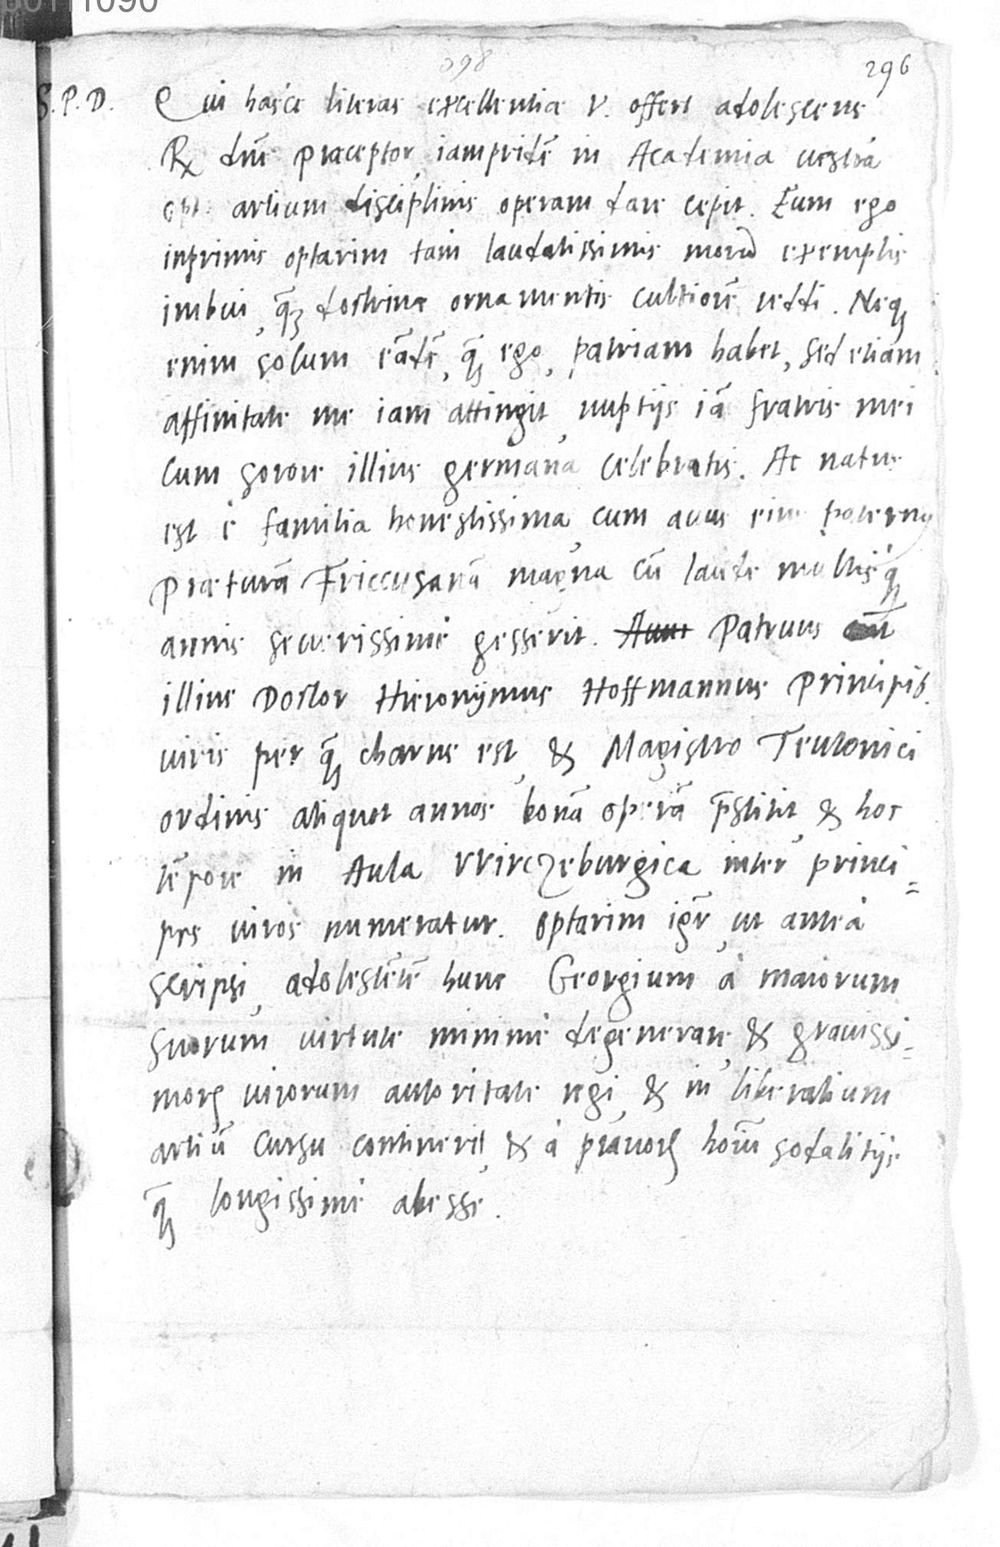 398
296
S. P. D. Qui hasce literas excellentiae v. offert adolescens
Rx dn̄e praeceptor, iampridē in Academia vestra
opt. artium disciplinis operam dare cepit. Eum ego
inprimis optarim tam laudatissimis morū exemplis
imbui, q̄ȝ doctrinae ornamentis cultiorē reddi. Neqȝ
enim solum eādē, q̄ȝ ego, patriam habet, sed etiam
affinitate me iam attingit, nuptijs iā fratris mei
cum sorore illius germana celebratis. Ac natus
est è familia honestissima, cum avus eius paternus
Praeturā Friccusanā magna cū laude multisq̄ȝ
annis severissimè gesserit. Patruus
illius Doctor Hieronymus Hoffmannus Principib.
viris per q̄ȝ charus est, & Magistro Teutonici
ordinis aliquot annos bonā operā p̄stitit, & hoc
tēpore in Aula VVirczeburgica inter princi=
pes viros numeratur. Optarim igr̄, ut anteà
scripsi, adolescētē hunc Georgium à maiorum
suorum virtute minimè degenerare, & gravissi=
morȝ virorum autoritate regi, & in liberalium
artiū cursu contineri, & à pravorȝ hoīm sodalitijs
q̄ȝ longissimè abesse.